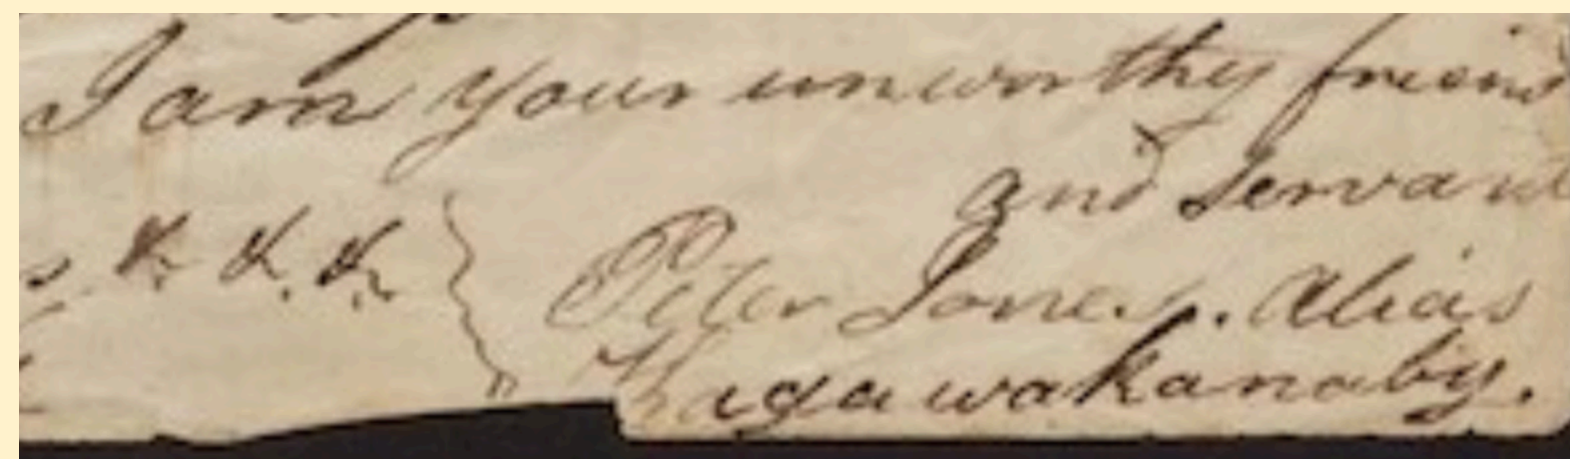 I am your unworthy friend
and Servant
&c. &c. &c.
Peter Jones. Alias
Kagawakanaby.